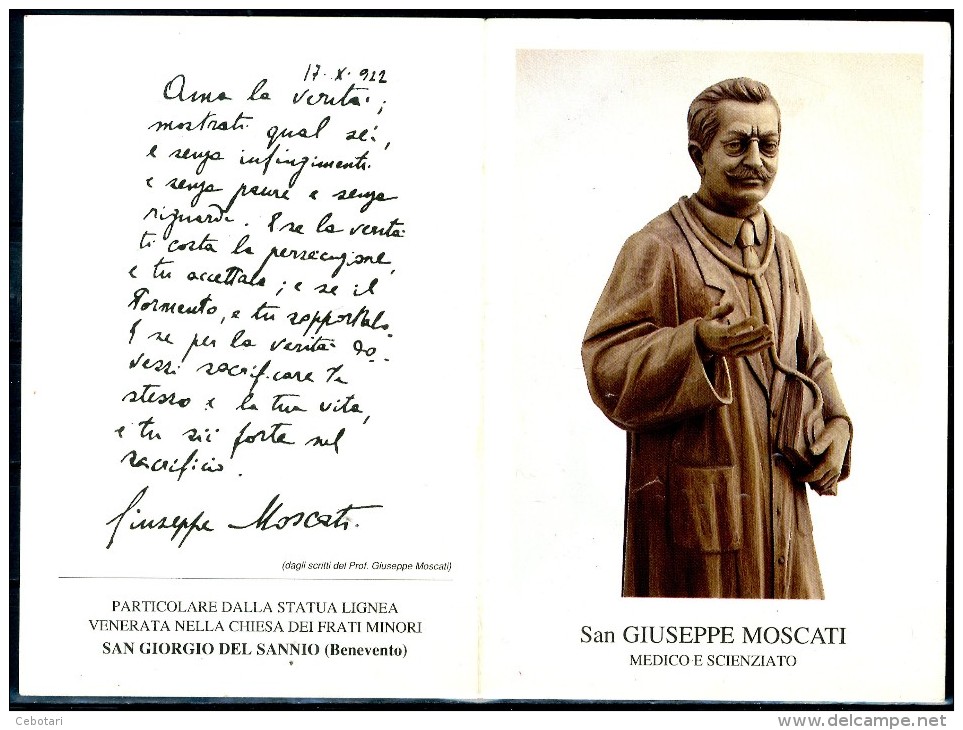 17. X. 922
Ama la verità;
mostrati qual sei,
e senza infingimenti
e senza paure e senza
riguardi. E se la verità
ti costa la persecuzione,
e tu accettala; e se il
tormento, e tu sopportalo.
E se per la verità do-
vessi sacrificare te
stesso e la tua vita,
e tu sii forte nel
sacrificio.
Giuseppe Moscati.
(dagli scritti del Prof. Giuseppe Moscati)
PARTICOLARE DALLA STATUA LIGNEA
VENERATA NELLA CHIESA DEI FRATI MINORI
SAN GIORGIO DEL SANNIO (Benevento)
San GIUSEPPE MOSCATI
MEDICO E SCIENZIATO
Cebotari
www.delcampe.net